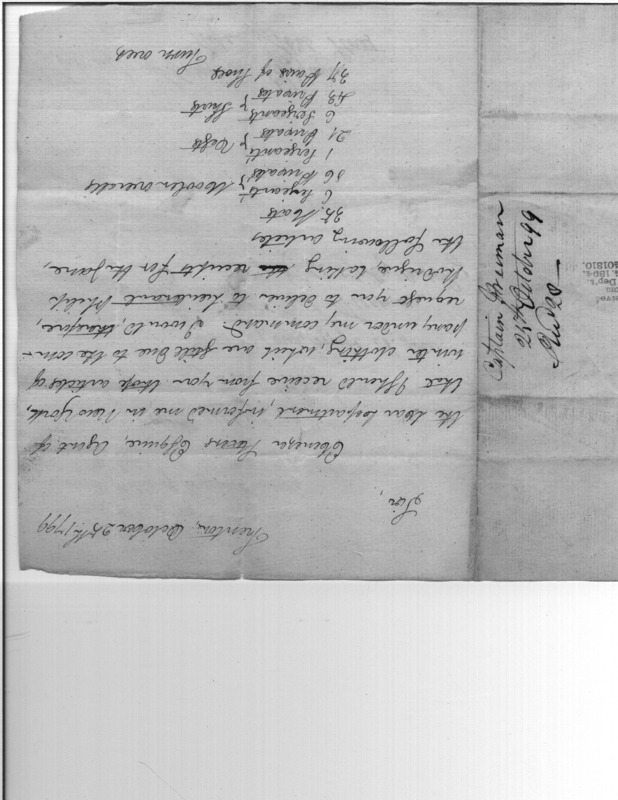 Trenton, October 25th 1799
Sir,
Ebenezer Stevens Esquire, Agent of
the War Department, informed me in New York,
that I should receive from you those articles of
winter clothing, which are still due to the com-
pany under my command. I would, therefore,
request you to deliver to Lieutenant Philip
Rodrigue, taking receipts for the same,
the following articles
35. Hats
6 Sergeants'
56 Privates' } Woolen overalls
1 Sergeants'
21 Privates' } Vests
6 Sergeants'
43 Privates' } Shirts
37 Pairs of Shoes
Turn over
Captain Freeman
25th October 99
401810.